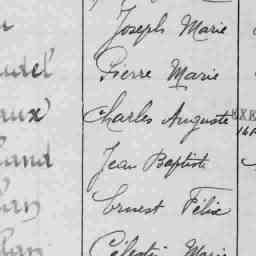 Joseph Marie
Pierre Marie
Charles Auguste EXE
Jean Baptiste
Ernest Félix
Célestin Marie